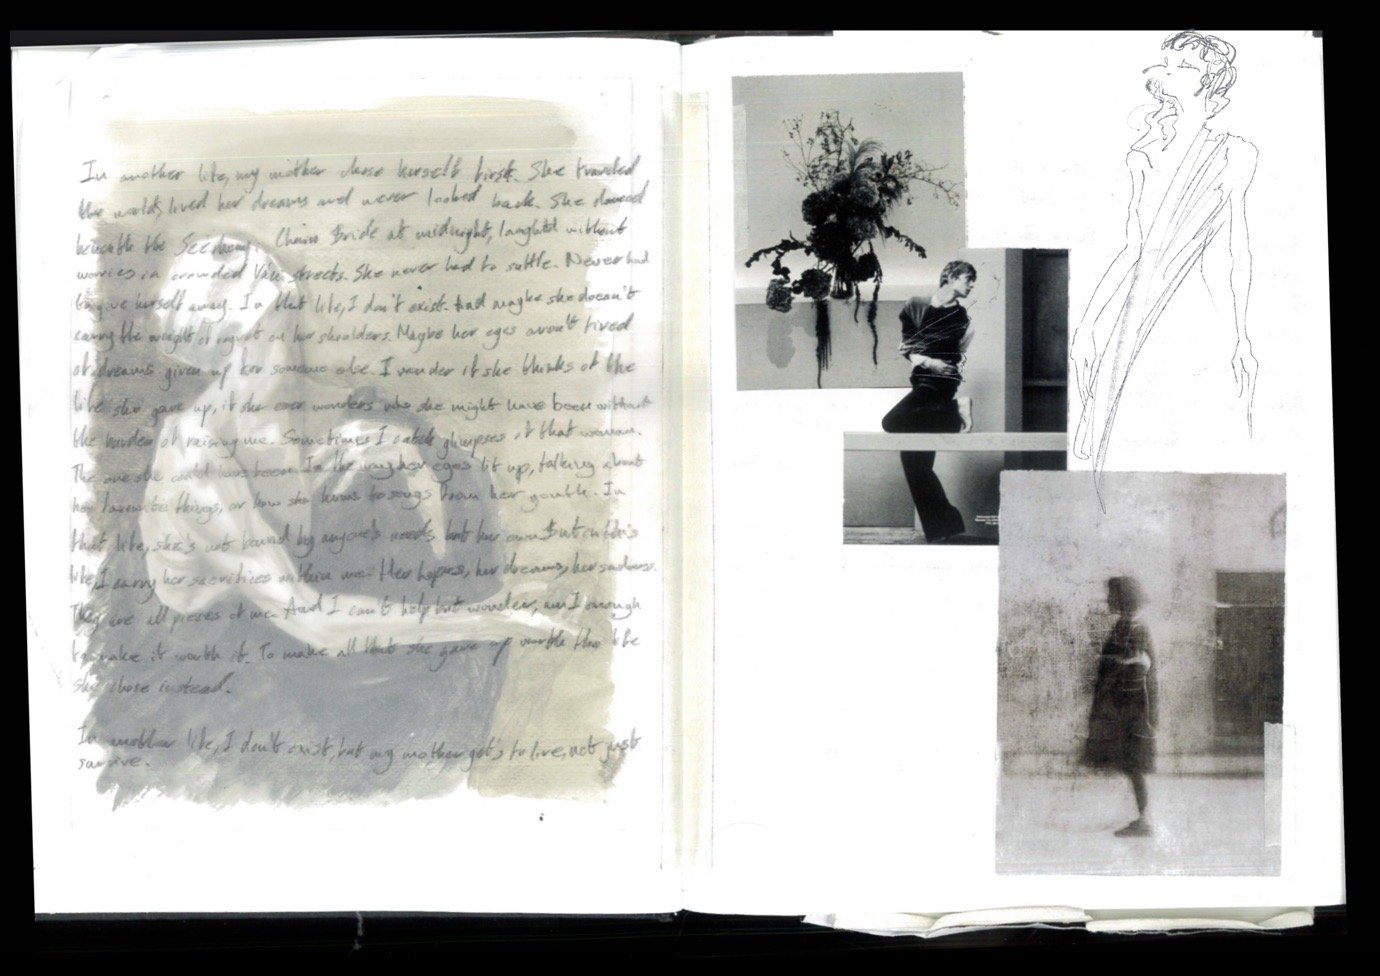 In another life, my mother chose herself first. She traveled
the world, lived her dreams and never looked back. She danced
beneath the Széchenyi Chain Bride at midnight, laughed without
worries in crowded Váci streets. She never had to settle. Never had
to give herself away. In that life, I don't exist. And maybe she doesn't
carry the weight of regret on her shoulders. Maybe her eyes aren't tired
of dreams given up for someone else. I wonder if she thinks of the
life she gave up, if she ever wonders who she might have been without
the burden of raising me. Sometimes I catch glimpses of that woman.
The one she could have been. In the way her eyes lit up, talking about
her favourite things, or how she hums to songs from her youth. In
that life, she's not bound by anyone's needs but her own. But in this
life, I carry her sacrifices within me. Her hopes, her dreams, her sadness.
They are all pieces of me. And I can't help but wonder, am I enough
to make it worth it. To make all that she gave up worth the life
she chose instead.
In another life, I don't exist, but my mother gets to live, not just
survive.